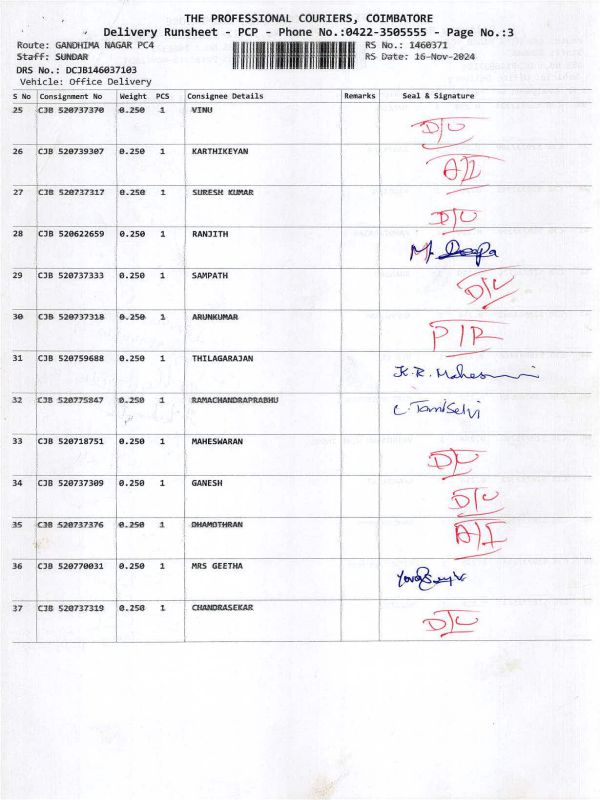 THE PROFESSIONAL COURIERS, COIMBATORE
Delivery Runsheet - PCP - Phone No.:0422-3505555 - Page No.:3
Route: GANDHIMA NAGAR PC4 RS No.: 1460371
Staff: SUNDAR RS Date: 16-Nov-2024
DRS No.: DCJB146037103
Vehicle: Office Delivery
S No Consignment No Weight PCS Consignee Details Remarks Seal & Signature
25 CJB 520737370 0.250 1 VINU D/C
26 CJB 520739307 0.250 1 KARTHIKEYAN
27 CJB 520737317 0.250 1 SURESH KUMAR D/C
28 CJB 520622659 0.250 1 RANJITH M. Deepa
29 CJB 520737333 0.250 1 SAMPATH D/C
30 CJB 520737318 0.250 1 ARUNKUMAR P/R
31 CJB 520759688 0.250 1 THILAGARAJAN
32 CJB 520775847 0.250 1 RAMACHANDRAPRABHU C. TamilSelvi
33 CJB 520718751 0.250 1 MAHESWARAN D/C
34 CJB 520737309 0.250 1 GANESH D/C
35 CJB 520737376 0.250 1 DHAMOTHRAN A/I
36 CJB 520770031 0.250 1 MRS GEETHA
37 CJB 520737319 0.250 1 CHANDRASEKAR D/C